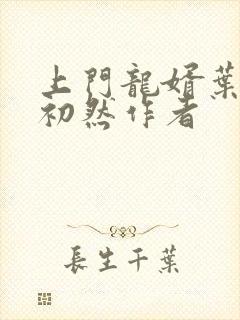 上門龍婿葉
初然作者
長生千葉